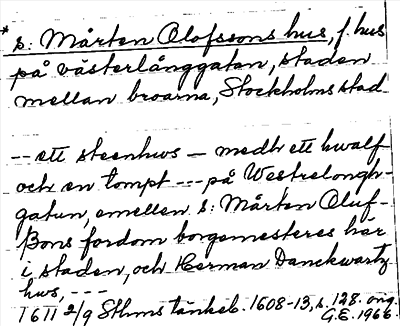 * s: Mårten Olofssons hus, f. hus
på västerlånggatan, staden
mellan broarna, Stockholms stad
-- ett steenhws — medh ett hwalf
och en tompt --- på Westrelongh-
gatun, emellen s: Mårten Oluf-
ßons fordom borgemesteres här
i staden, och Herman Danckwartz
hws, ---
1611 2/9 Sthms tänkeb. 1608-13, s. 128. orig.
G.E. 1966.